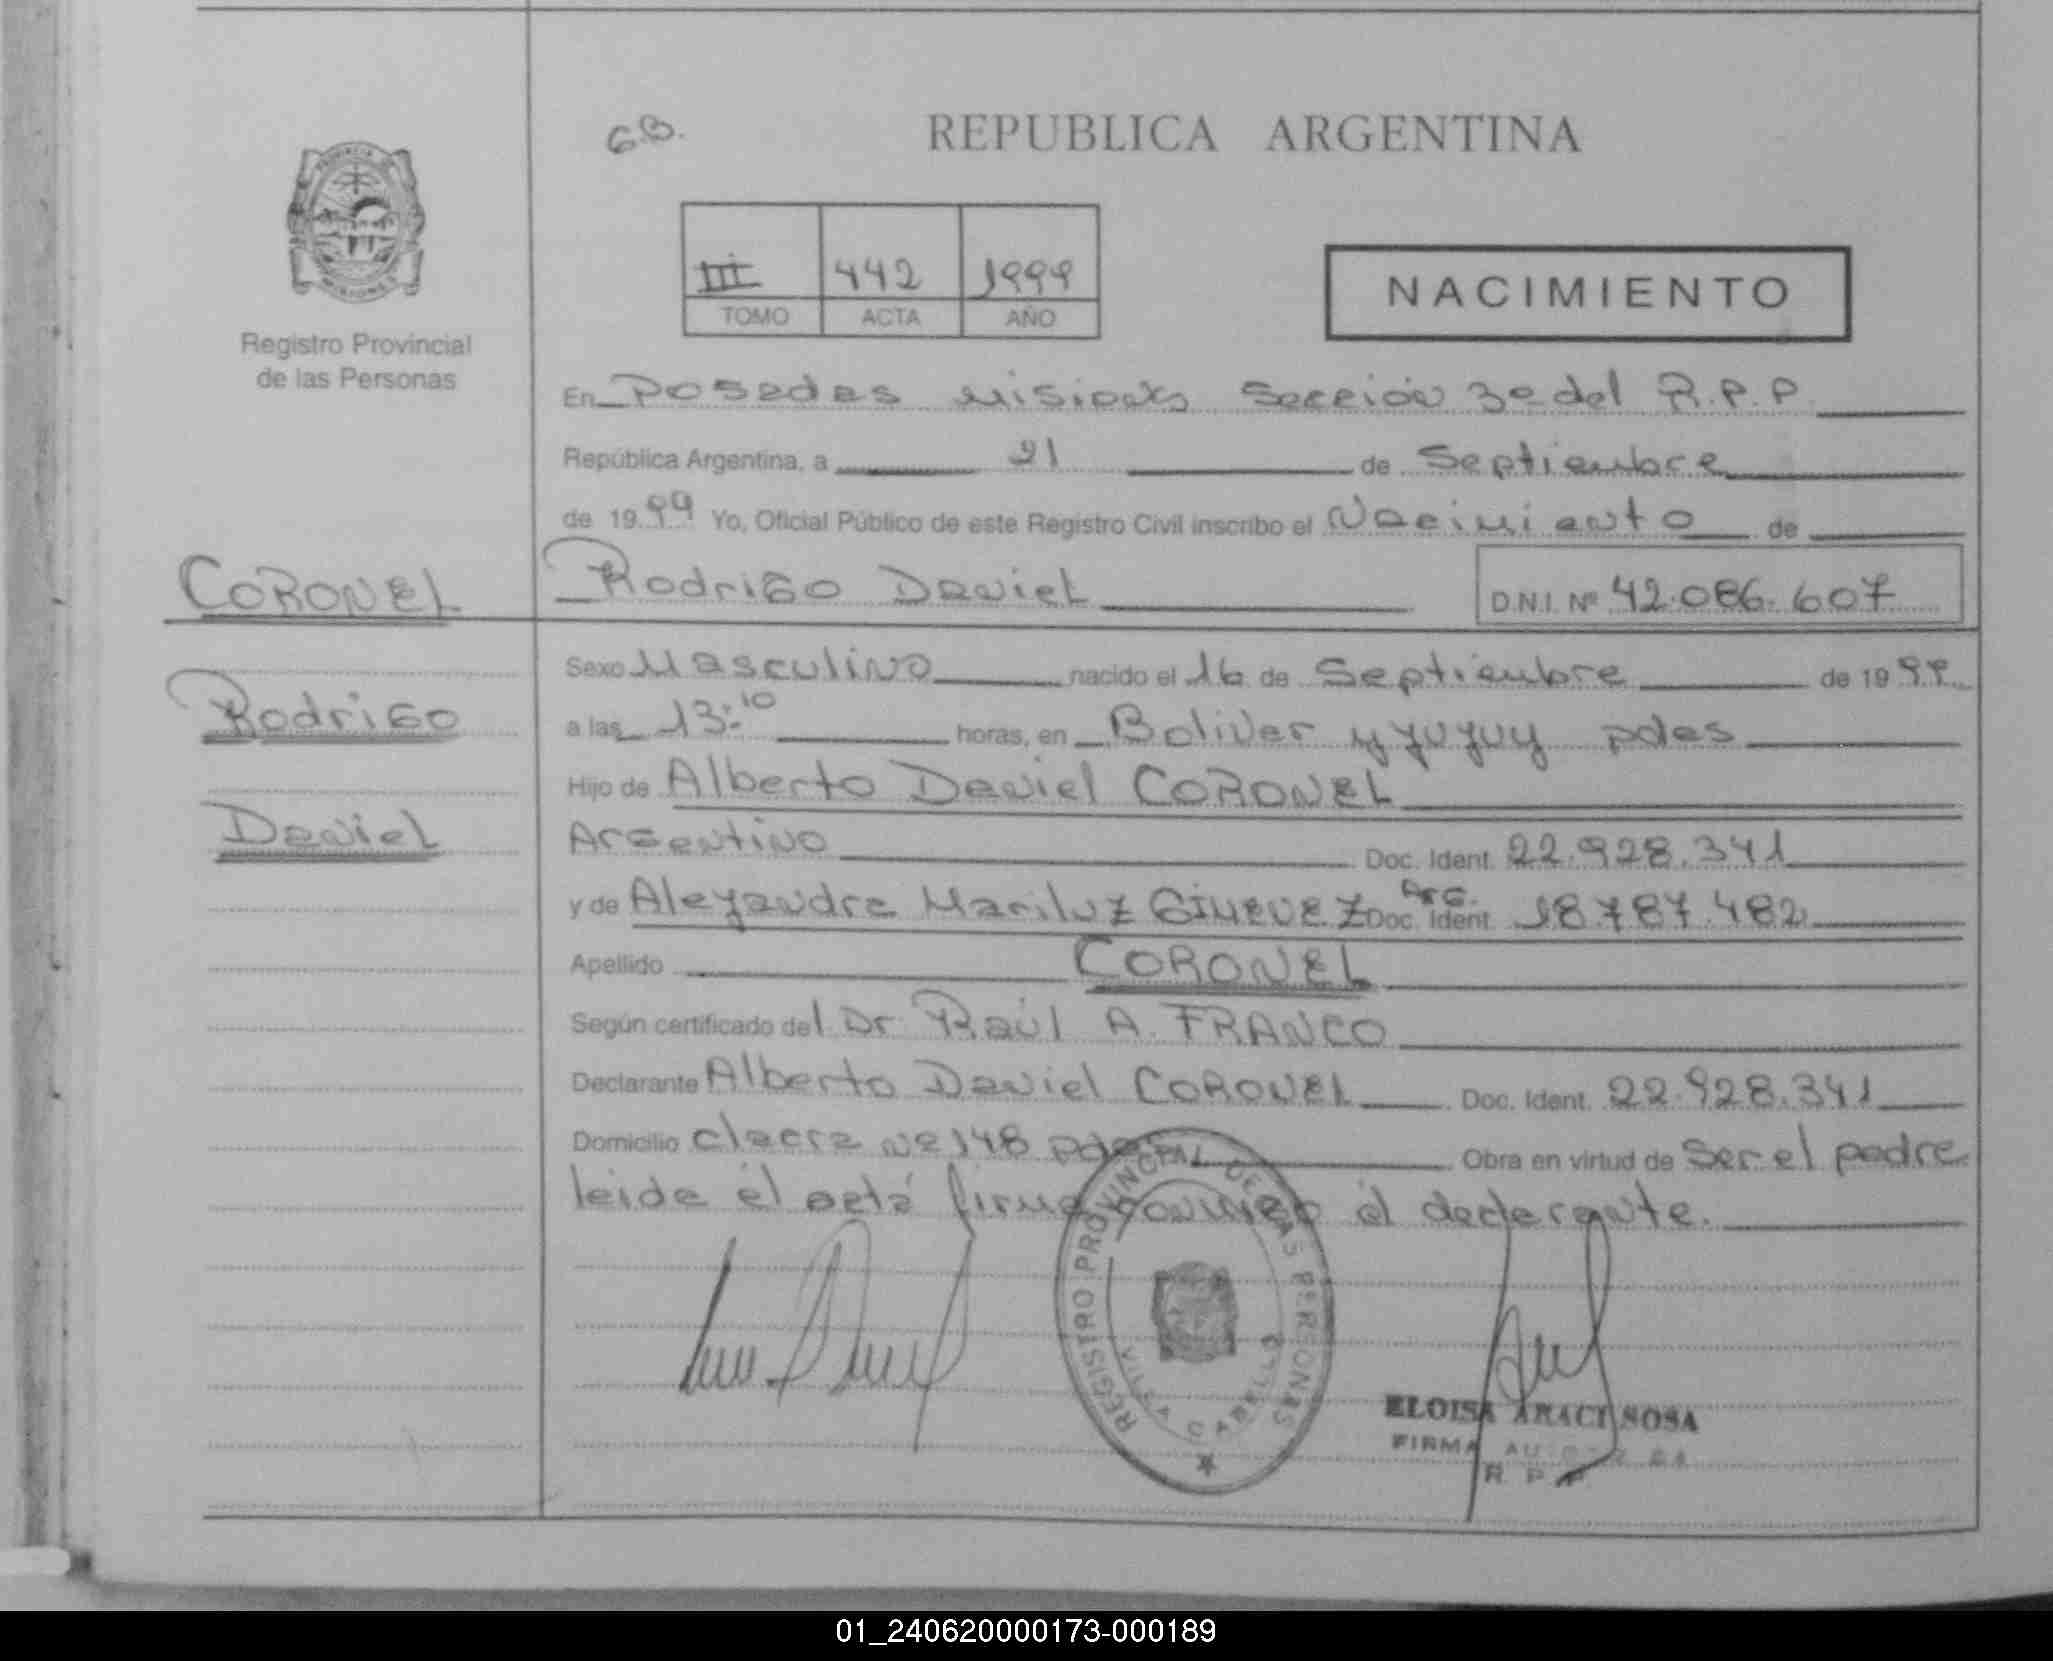 G.B.
REPUBLICA ARGENTINA
III 442 1999
TOMO ACTA AÑO
NACIMIENTO
Registro Provincial
de las Personas
En Posadas Misiones Sección 3º del R.P.P.
República Argentina, a 21 de Septiembre
de 1999 Yo, Oficial Público de este Registro Civil inscribo el Nacimiento de
CORONEL
Rodrigo Daniel D.N.I. Nº 42.086.607
Rodrigo
Daniel
Sexo Masculino nacido el 16 de Septiembre de 1999
a las 13:10 horas, en Bolivar y Juyuy pdas
Hijo de Alberto Daniel CORONEL
Argentino Doc. Ident. 22.928.341
y de Aleyandra Mariluz GIMENEZ Arg. Doc. Ident. 18787.482
Apellido CORONEL
Según certificado del Dr Raúl A. FRANCO
Declarante Alberto Daniel CORONEL Doc. Ident. 22.928.341
Domicilio chacra Nº 148 pdas Obra en virtud de Ser el padre
leida el acta firma conmigo el declarante.
REGISTRO PROVINCIAL DE LAS PERSONAS
VILLA CABELLO
ELOISA ARACI SOSA
FIRMA
R P P
01_240620000173-000189